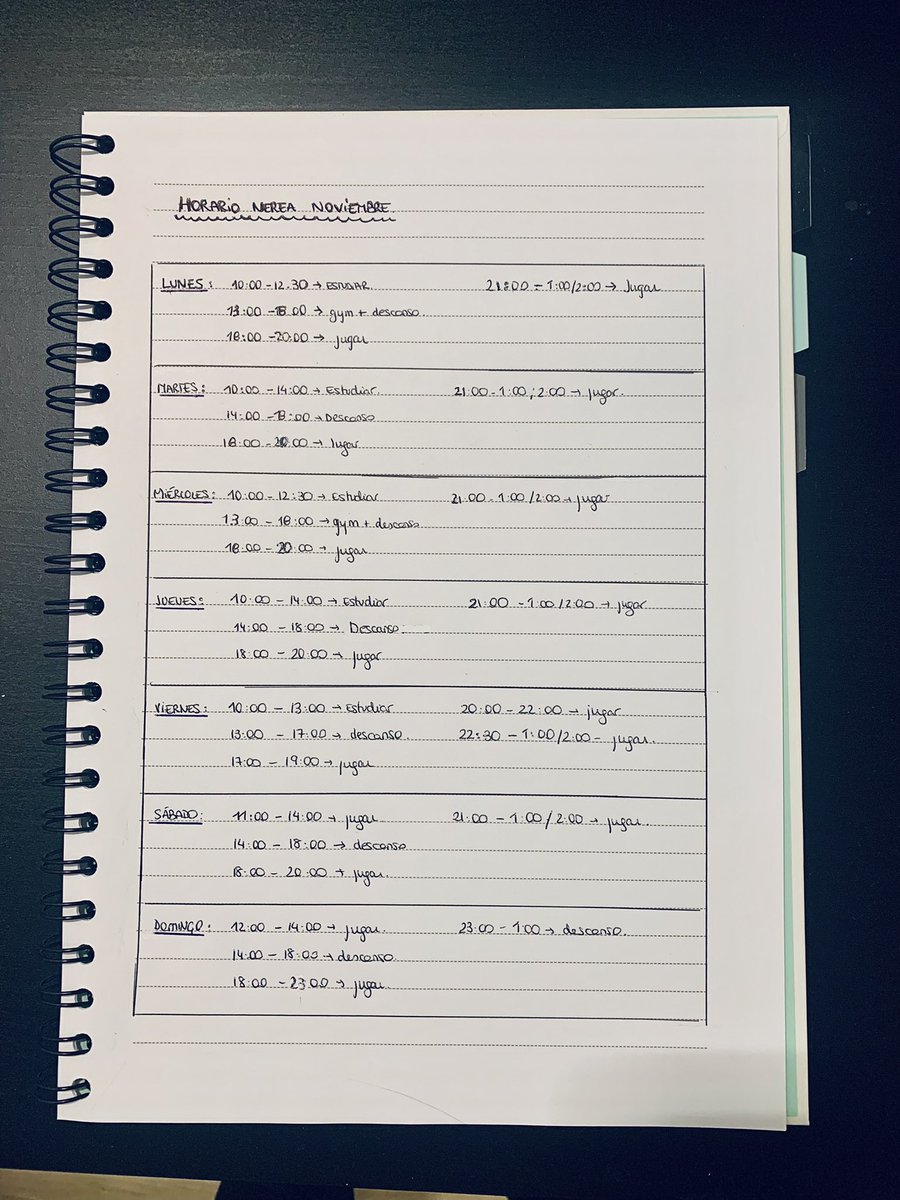 HORARIO NEREA NOVIEMBRE
LUNES: 10:00 - 12:30 → ESTUDIAR 21:00 - 1:00/2:00 → Jugar
13:00 - 18:00 → gym + descanso.
18:00 - 20:00 → jugar
MARTES: 10:00 - 14:00 → Estudiar. 21:00 - 1:00 ; 2:00 → jugar.
14:00 - 18:00 → Descanso
18:00 - 20:00 → Jugar
MIÉRCOLES: 10:00 - 12:30 → Estudiar 21:00 - 1:00/2:00 → jugar
13:00 - 18:00 → gym + descanso
18:00 - 20:00 → jugar
JUEVES: 10:00 - 14:00 → Estudiar 21:00 - 1:00/2:00 → jugar
14:00 - 18:00 → Descanso.
18:00 - 20:00 → jugar
VIERNES: 10:00 - 13:00 → Estudiar 20:00 - 22:00 → jugar
13:00 - 17:00 → descanso. 22:30 - 1:00/2:00 - jugar.
17:00 - 19:00 → jugar
SÁBADO: 11:00 - 14:00 → jugar 21:00 - 1:00/2:00 → jugar.
14:00 - 18:00 → descanso
18:00 - 20:00 → jugar.
DOMINGO: 12:00 - 14:00 → jugar. 23:00 - 1:00 → descanso.
14:00 - 18:00 → descanso.
18:00 - 23:00 → jugar.